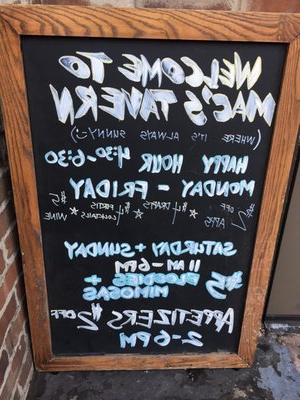 WELCOME TO
MAC'S TAVERN
(WHERE IT'S ALWAYS SUNNY :-)
HAPPY HOUR 4:30-6:30
MONDAY - FRIDAY
$2 OFF DRAFTS $5
APPS COCKTAILS WINE
SATURDAY + SUNDAY
11 AM - 6PM
$5 BLOODIES +
MIMOSAS
APPETIZERS $2 OFF
2-6PM